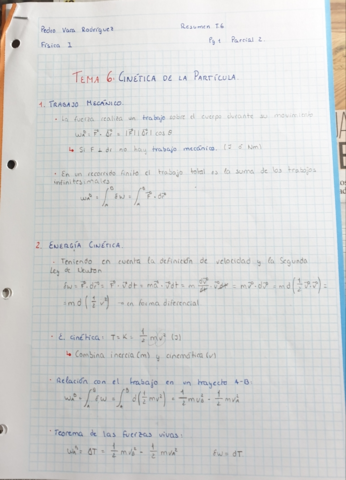 Pedro Vara Rodríguez Resumen T6
Física I Pg 1 Parcial 2.
TEMA 6: CINÉTICA DE LA PARTÍCULA.
1. TRABAJO MECÁNICO.
· La fuerza realiza un trabajo sobre el cuerpo durante su movimiento
= |F⃗| |Δr⃗| cos θ
↳ Si F ⊥ dr no hay trabajo mecánico. (J, Nm)
· En un recorrido finito el trabajo total es la suma de los trabajos
infinitesimales.
= ∫ δW = ∫ F⃗ · dr⃗
2. ENERGÍA CINÉTICA.
· Teniendo en cuenta la definición de velocidad y la Segunda
Ley de Newton
δW = F⃗ · dr⃗ = F⃗ · v⃗ dt = m a⃗ · v⃗ dt = m dv⃗/dt · v⃗ dt = m v⃗ · dv⃗ = m d(1/2 v⃗ · v⃗) =
= m d(1/2 v²) → en forma diferencial
· E. cinética: T = K = 1/2 mv² (J)
↳ Combina inercia (m) y cinemática (v)
· Relación con el trabajo en un trayecto A-B:
= ∫ δW = ∫ d(1/2 mv²) = 1/2 mv_B² - 1/2 mv_A²
· Teorema de las fuerzas vivas:
= ΔT = 1/2 mv_B² - 1/2 mv_A² δW = dT